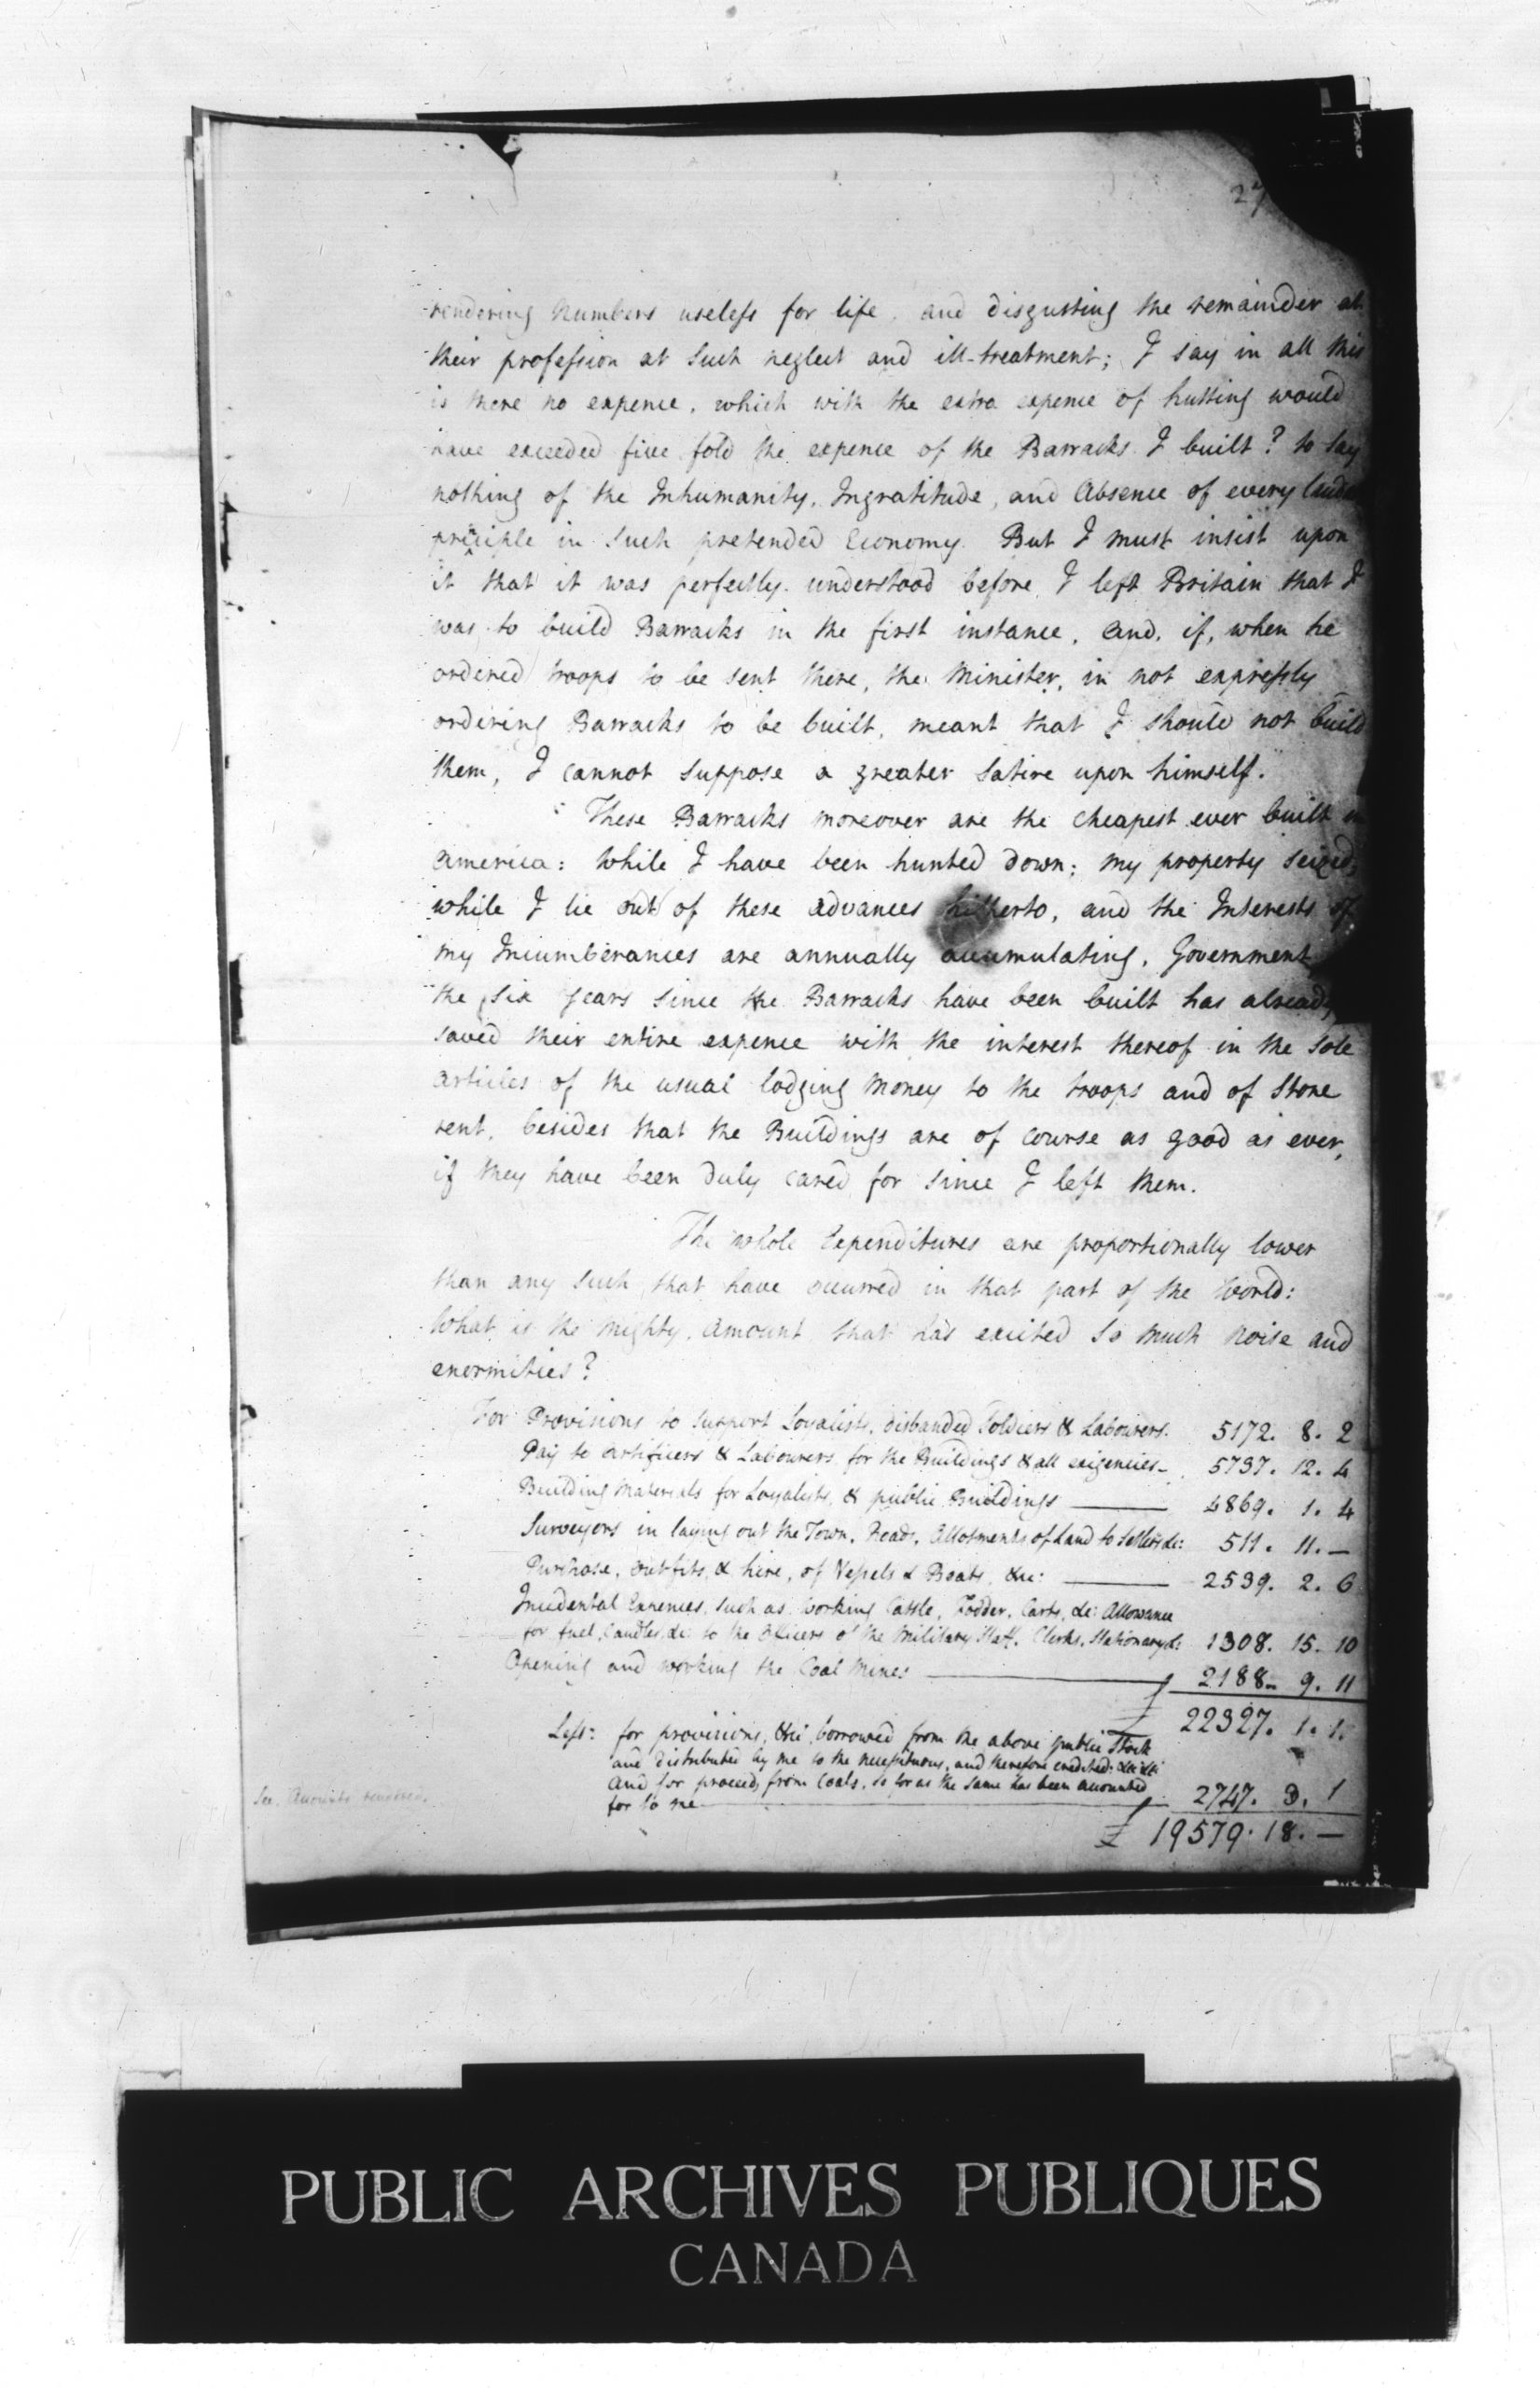 27
rendering numbers useless for life, and disgusting the remainder at
their profession at such neglect and ill-treatment; I say in all this
is there no expence, which with the extra expence of hutting would
have exceeded five fold the expence of the Barracks I built? to say
nothing of the Inhumanity, Ingratitude, and Absence of every
principle in such pretended Economy. But I must insist upon
it that it was perfectly understood before I left Britain that I
was to build Barracks in the first instance, and, if, when he
ordered troops to be sent there, the Minister, in not expressly
ordering Barracks to be built, meant that I should not build
them, I cannot suppose a greater Satire upon himself.
These Barracks moreover are the cheapest ever built in
America: While I have been hunted down; my property seized;
while I lie out of these advances hitherto, and the Interests of
my Incumberances are annually accumulating, Government
the six years since the Barracks have been built has already
saved their entire expence with the interest thereof in the sole
articles of the usual lodging money to the troops and of Store
rent, besides that the Buildings are of course as good as ever,
if they have been duly cared for since I left them.
The whole Expenditures are proportionally lower
than any such that have occurred in that part of the World:
What is the mighty amount that has excited so much noise and
enormities?
For Provisions to support Loyalists, disbanded Soldiers & Labourers. 5172. 8. 2
Pay to Artificers & Labourers for the Buildings & all exigencies - 5737. 12. 4
Building Materials for Loyalists, & public Buildings 4869. 1. 4
Surveyors in laying out the Town, Roads, Allotments of Land to Settlers &c: 511. 11. -
Purchase, outfits, & hire, of Vessels & Boats, &c: 2539. 2. 6
Incidental Expences, such as working Cattle, Fodder, Carts, &c: Allowance
for fuel, Candles, &c to the Officers of the Military Staff, Clerks, Stationary &c 1308. 15. 10
Opening and working the Coal Mines 2188 - 9. 11
£ 22327. 1. 1.
Less: for provisions, &c: borrowed from the above public Stock
and distributed by me to the necessitous, and therefore credited: &c &c:
And for proceeds from Coals, so far as the same has been accounted
for to me 2747. 3. 1
£ 19579. 18. -
See Accounts
PUBLIC ARCHIVES PUBLIQUES
CANADA